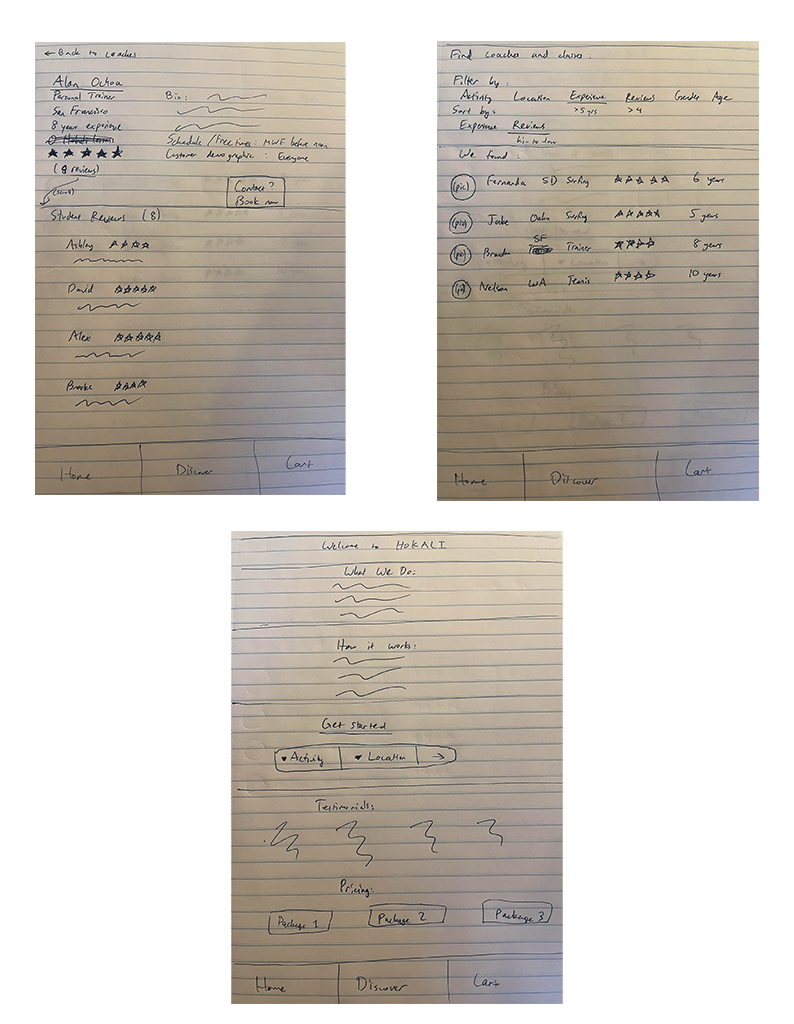 ← Back to coaches
Alan Ochoa
Personal Trainer
Bio:
San Francisco
8 year experience
Schedule / Free times: MWF before noon
Customer demographic: Everyone
(8 reviews)
(scroll)
Contact?
Book now
Student Reviews (8)
Ashley
David
Alex
Brooke
Home Discover Cart
Find coaches and classes:
Filter by:
Activity Location Experience Reviews Gender Age
>5 yrs >4
Sort by:
Experience Reviews
hi-to low
We found:
(pic) Fernanda SD Surfing 6 years
(pic) Jake Surfing 5 years
SF
(pic) Trainer 8 years
(pic) Nelson WA Tennis 10 years
Home Discover Cart
Welcome to HOKALI
What We Do:
How it works:
Get started
Activity Location →
Testimonials:
Pricing:
Package 1 Package 2 Package 3
Home Discover Cart